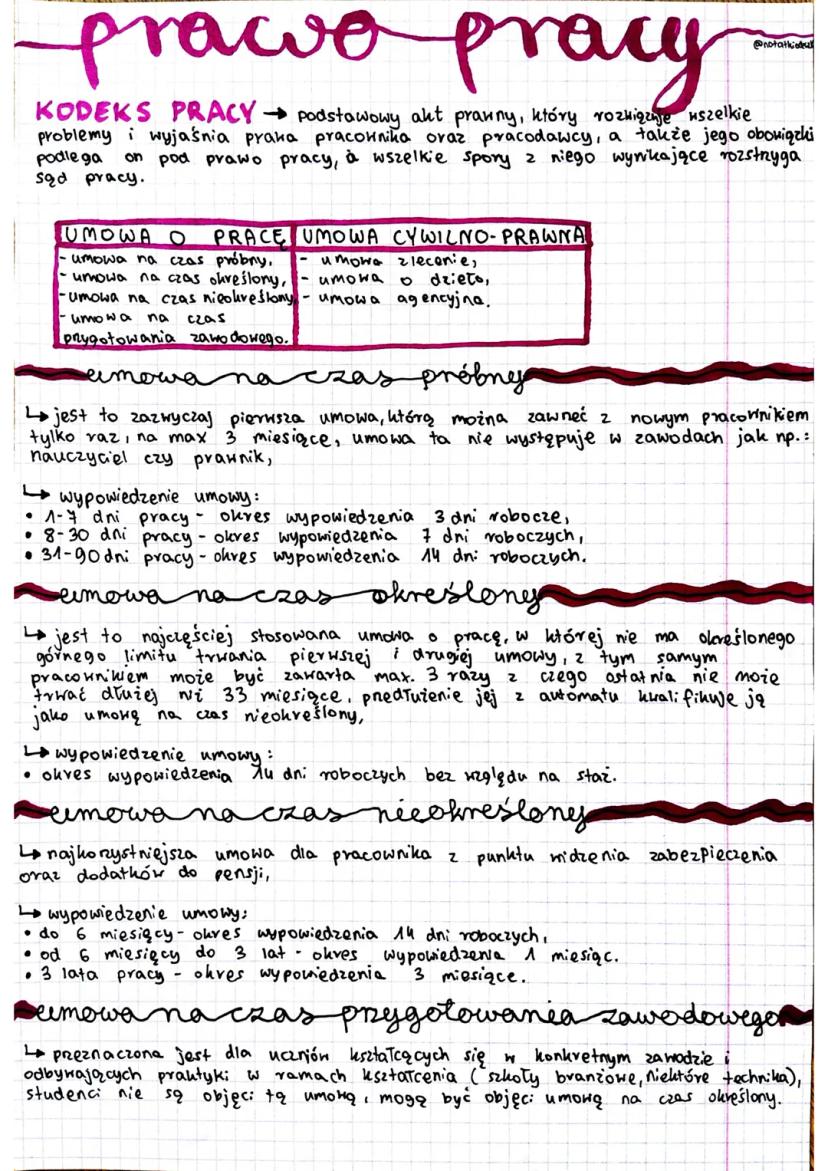 prawo pracy
@notatkiodzuzi
KODEKS PRACY → podstawowy akt prawny, który rozwiązuje wszelkie
problemy i wyjaśnia prawa pracownika oraz pracodawcy, a także jego obowiązki
podlega on pod prawo pracy, a wszelkie spory z niego wynikające rozstrzyga
sąd pracy.
UMOWA O PRACĘ
- umowa na czas próbny,
- umowa na czas określony,
- umowa na czas nieokreślony
- umowa na czas
przygotowania zawodowego.
UMOWA CYWILNO-PRAWNA
- umowa zlecenie,
- umowa o dzieło,
- umowa agencyjna.
umowa na czas próbny
↳ jest to zazwyczaj pierwsza umowa, którą można zawrzeć z nowym pracownikiem
tylko raz, na max 3 miesiące, umowa ta nie występuje w zawodach jak np.:
nauczyciel czy prawnik,
↳ wypowiedzenie umowy:
• 1-7 dni pracy - okres wypowiedzenia 3 dni robocze,
• 8-30 dni pracy - okres wypowiedzenia 7 dni roboczych,
• 31-90 dni pracy - okres wypowiedzenia 14 dni roboczych.
umowa na czas określony
↳ jest to najczęściej stosowana umowa o pracę, w której nie ma określonego
górnego limitu trwania pierwszej i drugiej umowy, z tym samym
pracownikiem może być zawarta max. 3 razy z czego ostatnia nie może
trwać dłużej niż 33 miesiące, przedłużenie jej z automatu kwalifikuje ją
jako umową na czas nieokreślony,
↳ wypowiedzenie umowy:
• okres wypowiedzenia 14 dni roboczych bez względu na staż.
umowa na czas nieokreślony
↳ najkorzystniejsza umowa dla pracownika z punktu widzenia zabezpieczenia
oraz dodatków do pensji,
↳ wypowiedzenie umowy:
• do 6 miesięcy - okres wypowiedzenia 14 dni roboczych,
• od 6 miesięcy do 3 lat - okres wypowiedzenia 1 miesiąc.
• 3 lata pracy - okres wypowiedzenia 3 miesiące.
umowa na czas przygotowania zawodowego
↳ przeznaczona jest dla uczniów kształcących się w konkretnym zawodzie i
odbywających praktyki w ramach kształcenia (szkoły branżowe, niektóre technika),
studenci nie są objęci tą umową, mogą być objęci umową na czas określony.